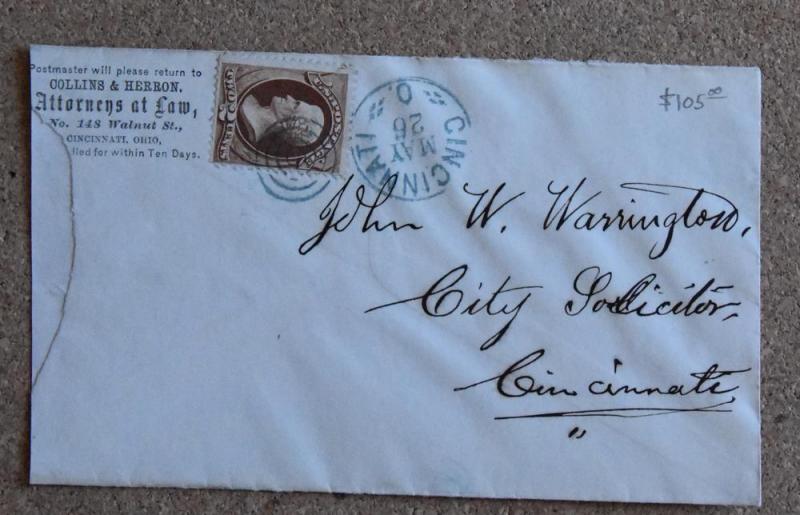 Postmaster will please return to
COLLINS & HERRON,
Attorneys at Law,
No. 148 Walnut St.,
CINCINNATI, OHIO,
lled for within Ten Days.
CINCINNATI O.
MAY
26
$105.00
John W. Warrington,
City Solicitor,
Cincinnati
"